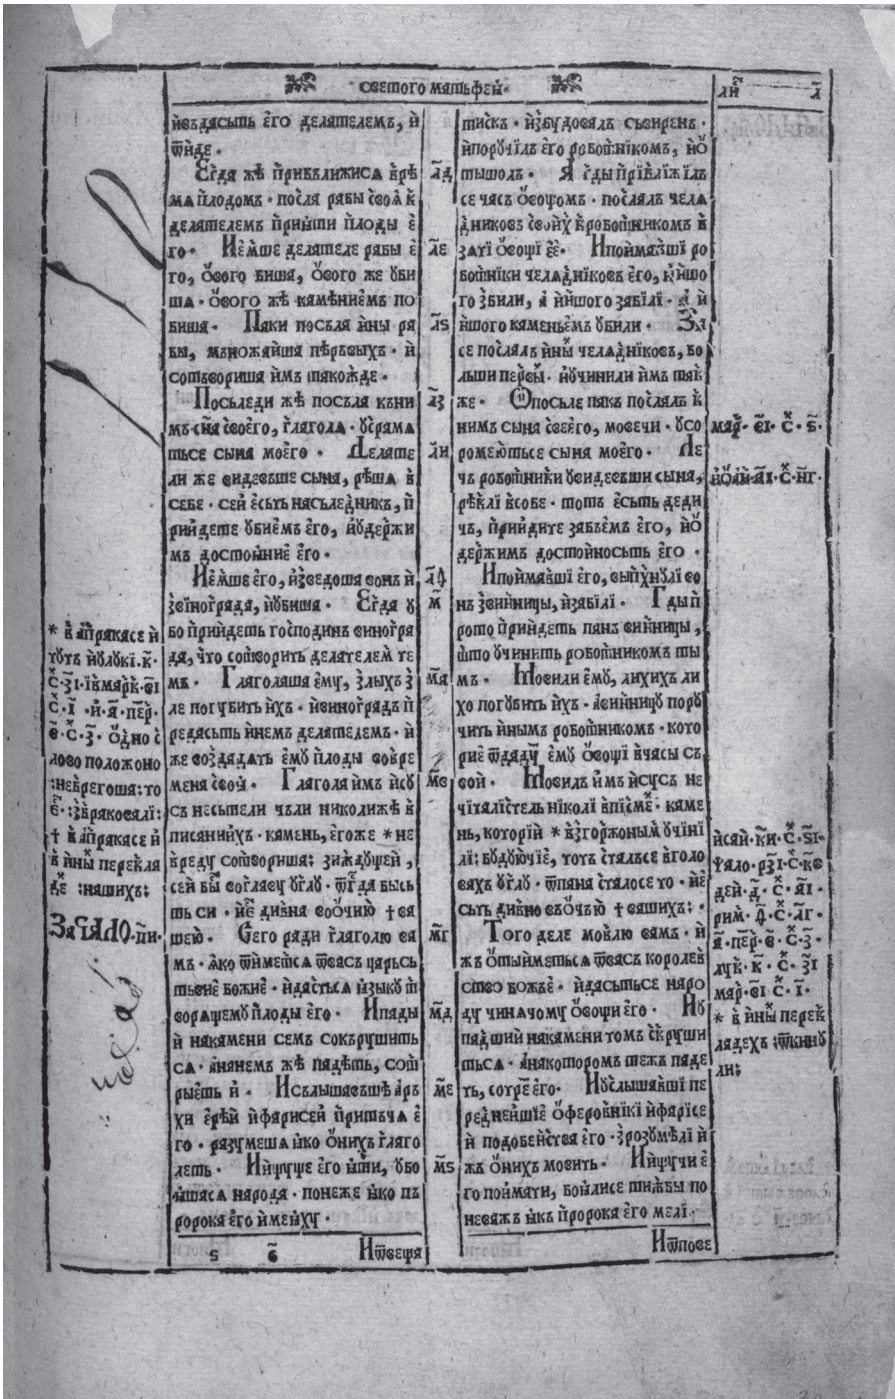 светого матьфеꙗ·
ли҃ л҃
ивъдасыть его делателемъ, и
ѿиде·
Егда жѣ прибълижисѧ врѣ
мѧ плодомъ· посла рабы своѧ к
делателемъ приꙗти плоды е
го· Иемше делателе рабы е
го, ового биша, ового же уби
шѧ· ового жѣ камѣниемъ по
биша· Паки посъла ины ра
бы, мъножайша пѣръвыхъ· и
сотъвориша имъ такожде·
Посьледи жѣ посъла къни
мъ сына своего, глаголѧ· усрамѧ
тьсе сына моего· Делате
ли же видевъше сына, рѣшѧ в
себе· сей есьть насьледникъ, п
рийдете убиемъ его, иудержи
мъ достоꙗние его·
Иемше его, изведоша вонъ и
звинограда, иубиша· Егда у
бо прийдеть господинъ виногра
да, что сотворить делателем те
мъ· Глаголаша ему, злыхъ з
ле погубить ихъ· ивиноградъ п
редасьть инем делателемъ· и
же воздадать ему плоды вовре
мена своꙗ· Глагола имъ ису
съ несьтели чъли николижѣ в
писаниихъ· камень, егоже * не
вреду сотвориша: зиждущей,
сей бы воглаву углу· ѿгда бысь
ть си· и е дивна воочию † ва
шею· Сего ради глаголю ва
мъ· ꙗко ѿиметсѧ ѿвасъ царьсь
твие божие· идастьсѧ ꙗзыку т
ворѧщему плоды его· Ипады
и накамени семъ сокрушить
сѧ· ананем же падеть, сот
рыеть и· Исълышавъше ар
хи ерѣи ифарисеи притъча е
го· разумешѧ ꙗко онихъ глаго
леть· Иищуще его ꙗти, убо
ꙗшасѧ народа· понеже ꙗко пъ
ророка его имеꙗху·
ѕ в҃ Иѿвеща
л҃д
л҃е
л҃ѕ
л҃з
л҃и
л҃ѳ
м҃
м҃а
м҃в
м҃г
м҃д
м҃е
м҃ѕ
тискъ· избудовалъ съвирень·
ипоручилъ его роботникомъ, ио
тышолъ· А гды приближилъ
се часъ овощомъ· послалъ челѧ
дниковъ своихъ кроботникомъ в
зати овощи ее· Ипоймавши ро
ботники челѧдниковъ его, иншо
го збили, а иншого забили· а и
ншого каменьемъ убили· Зы
се послалъ ины челѧдниковъ, бо
льши первы· иучинили имъ так
же· Опосьле пакъ послалъ к
нимъ сына своего, мовечи· усо
ромеютьсе сына моего· Ле
чъ роботники увидевши сына,
рѣкли всобе· тотъ есьть деди
чъ, прийдите забъемъ его, ио
держимъ достойносьть его·
Ипоймавши его, выпхнули во
нъ звинницы, изабили· Гды п
рото прийдеть панъ винницы,
што учинить роботникомъ ты
мъ· Мовили ему, лихихъ ли
хо погубить ихъ· авинницу пору
чить инымъ роботникомъ· кото
рие ѿдаду ему овощи вчасы съ
вои· Мовилъ имъ исусъ не
читалистель николи вписме· каме
нь, которий * взгоржоным учини
ли; будуючие, тотъ стальсе вголо
вахъ углу· ѿпана сталосе то· ие
сьть дивно въочъю † вашихъ:·
Того деле мовлю вамъ· и
жъ отыйметьсѧ ѿвасъ королев
ство божъе· идасьтьсе наро
ду чинѧчому овощи его· Иу
падший накамени томъ скруши
тьсѧ· анакоторомъ тежъ паде
ть, сотре его· Иуслышавши пе
реднейшие оферовники ифарисе
и подобенства его· зрозумѣли и
жъ онихъ мовить· Иищучи е
го поимати, боꙗлисе тижбы по
неважъ ꙗкъ пророка его мели·
Иѿпове
* в апракасе и
тутъ иулуки· к·
с· з҃і· івмарк· в҃і
с· і· и· а҃· пер·
в҃· с· з҃· одно с
лово положоно
:невреѓоша: то
е҃·:збраковали:
† в апракасе и
в ины перекла
де :нашихъ:
Зачало· п҃и·
мар· в҃і· с· ѕ҃·
иоан· а҃і· с· н҃г·
исаи· к҃и· с· ѕ҃і·
ѱало· рз҃і· с· кв
деи· д҃· с· а҃і·
рим· ѳ҃· с· л҃г·
а҃· пер· в҃· с· з҃·
лук· к҃· с· з҃і
мар· в҃і с· і·
* в ины перек
ладехъ :ѿкину
ли: